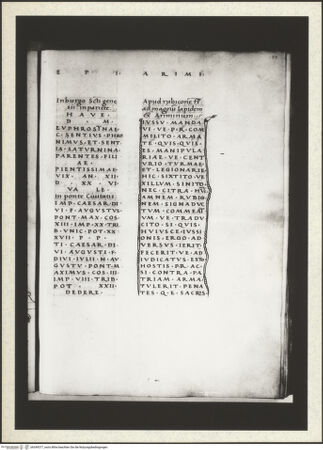 E P I A R I M I
In burgo Sci gene
sii in pariete.
H A V E .
D . M .
EVPHROSINAE .
C . SENTIVS . PHRO
NIMVS . ET . SENT
IA . SATVRNINA .
PARENTES . FILI
AE .
PIENTISSIMAE .
VIX . AN . XII .
D . XX . VI .
VA LE .
In ponte Civitatis .
IMP . CAESAR . DI
VI . F . AVGVSTVS .
PONT . MAX . COS .
XIII . IMP . XX . TRI
B . VNIC . POT . XX
XVII . P . P .
TI . CAESAR . DI
VI . AVGVSTI . F .
DIVI . IVLII . N . AV
GVSTV . PONT . M
AXIMVS . COS . IIII
IMP . VIII . TRIB .
POT . XXII .
DEDERE .
Apud rubiconem
ad magnum lapidem
Ariminum
IVSSV . MANDA
VI . VE . P . R . COM
MILITO . ARMA
TE . QVIS . QVIS .
ES . MANIPVLA
RIAE . VE . CENT
VRIO . TVRMAE .
ET . LEGIONARIE
HIC . SISTITO . VE
XILLVM . SINITO .
NEC . CITRA . HVN
AMNEM . RVBICO
NEM . SIGNA . DVCT
TVM . COMMEAT
VM . VE . TRADV
CITO . SI . QVIS .
HVIVSCE . IVSSI
ONIS . ERGO . AD
VERSVS . IERIT .
FECERIT . VE . AD
IVDICATVS . ESTO
HOSTIS . P . R . AC
SI . CONTRA . PA
TRIAM . ARMA .
TVLERIT . PENA
TES . Q . E . SACRIS .